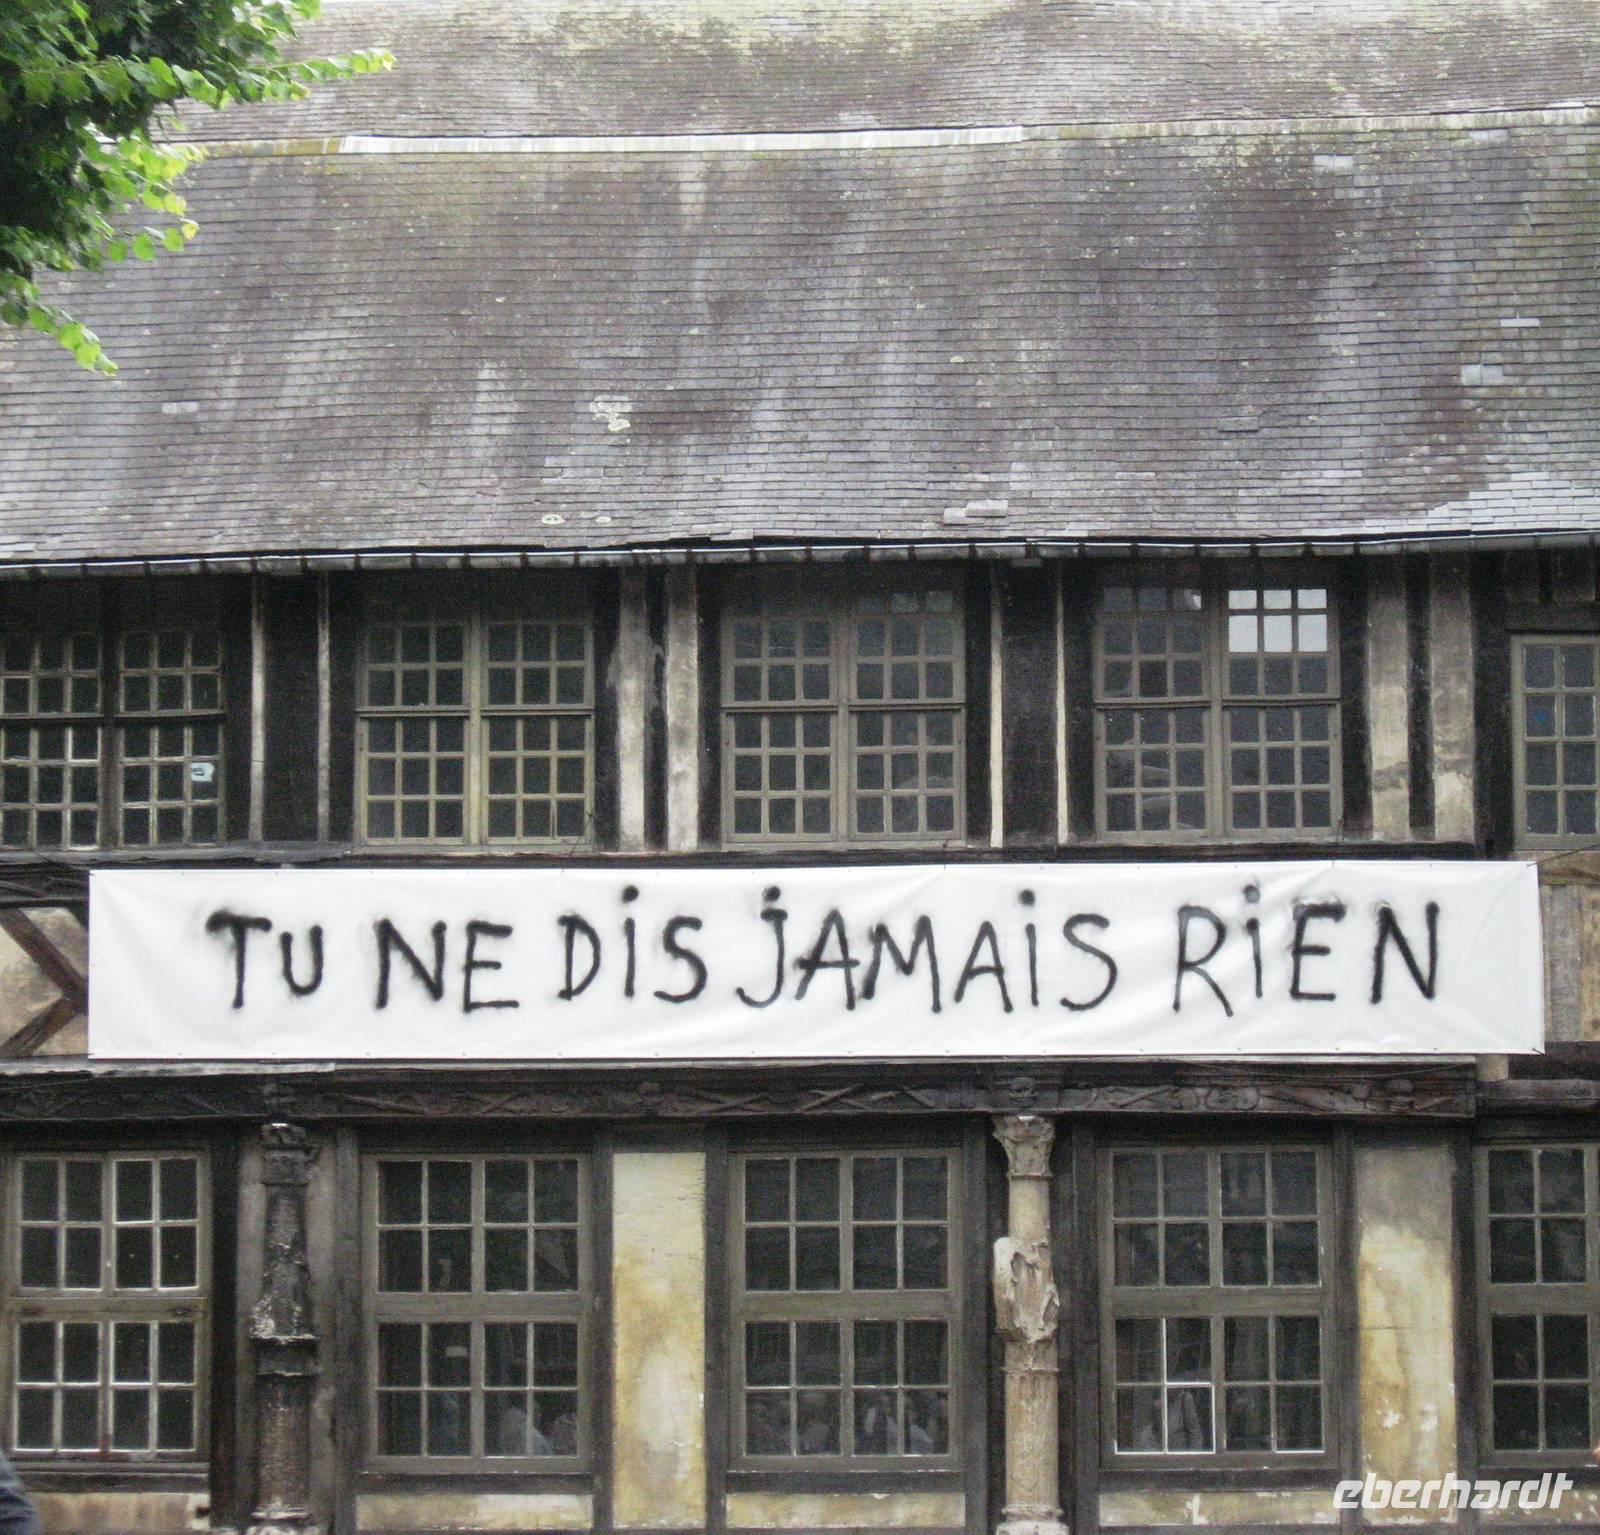 TU NE DiS jAMAiS RiEN
eberhardt